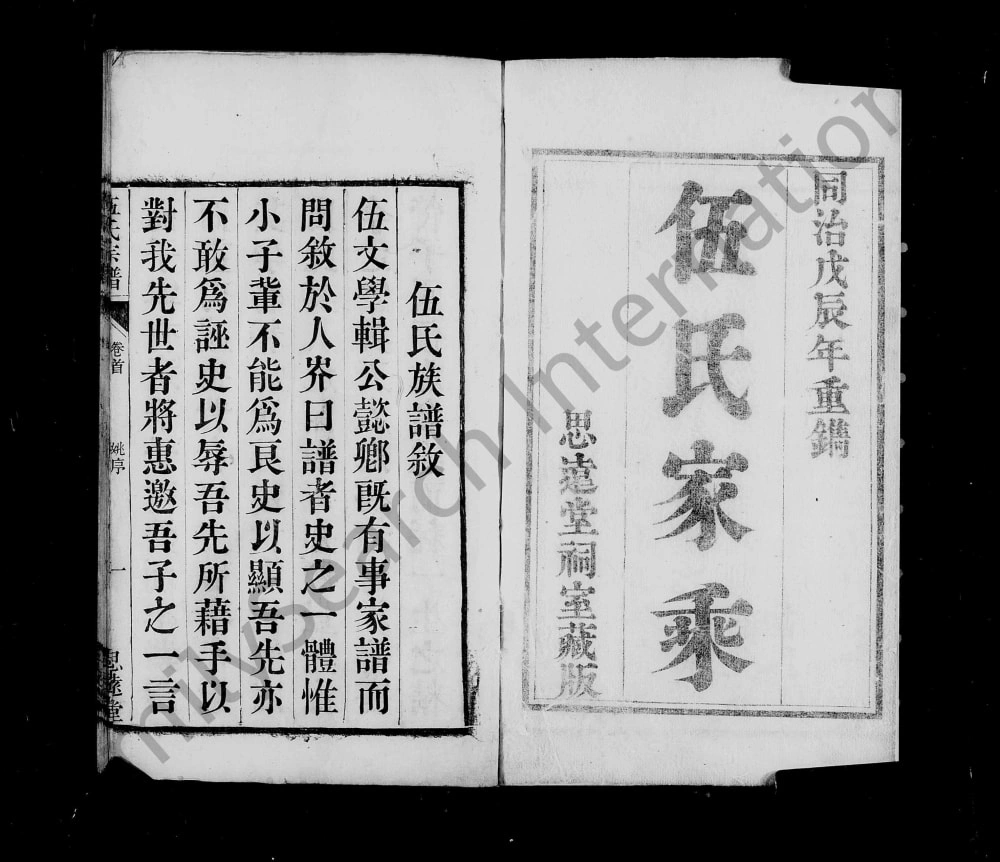 同治戊辰年重鐫
伍氏家乘
思遠堂祠室藏版
伍氏族譜敘
伍文學輯公懿鄉旣有事家譜而
問敘於人岕曰譜者史之一體惟
小子輩不能爲良史以顯吾先亦
不敢爲誣史以辱吾先所藉手以
對我先世者將惠邀吾子之一言
伍氏宗譜
卷首
姚序
一
思遠堂
milySearch International